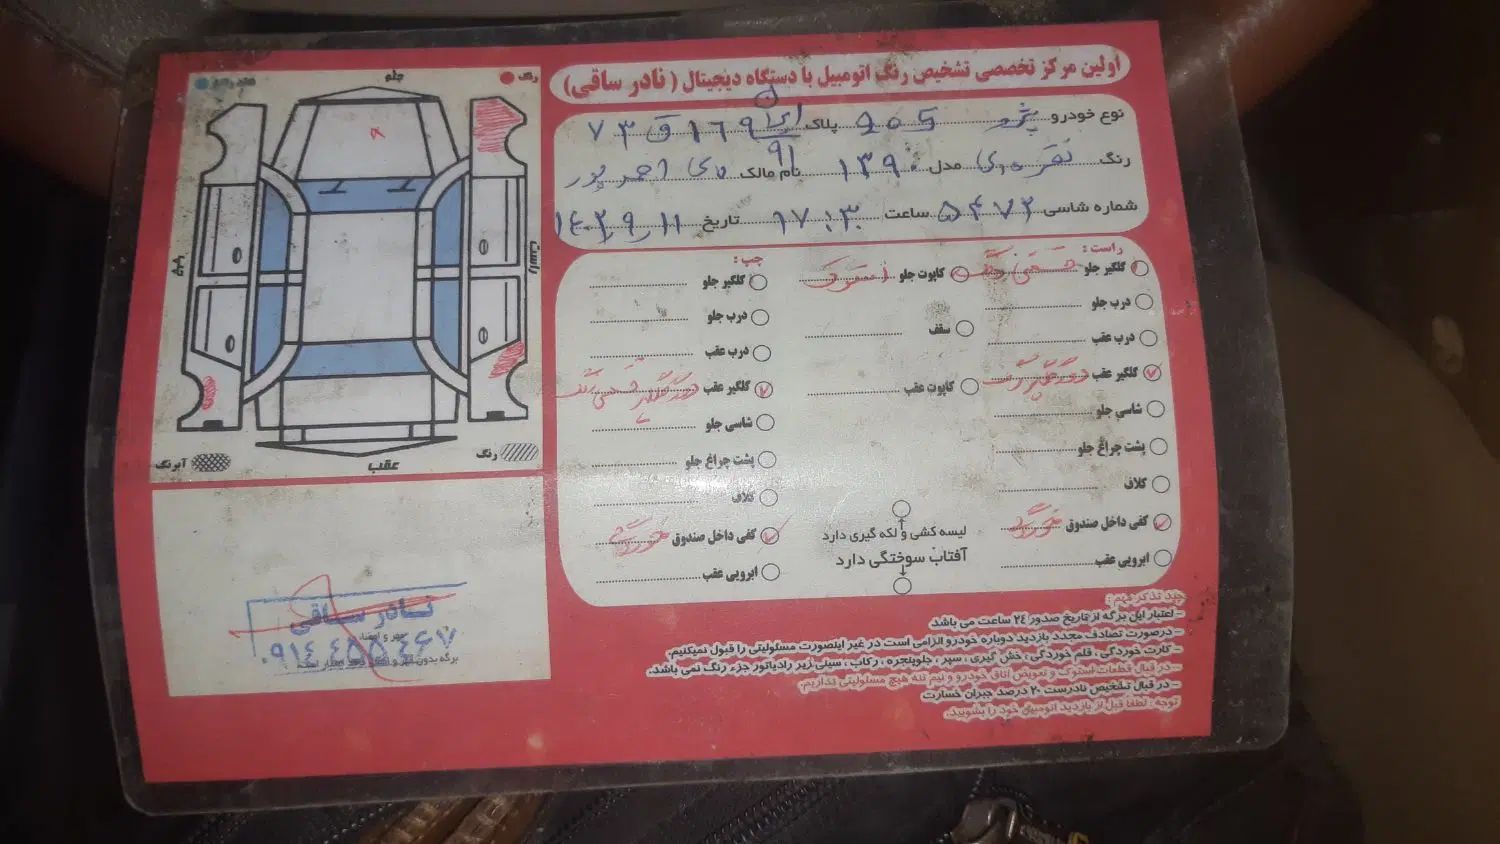 اولین مرکز تخصصی تشخیص رنگ اتومبیل با دستگاه دیجیتال ( نادر ساقی)
نوع خودرو پژو ۴۰۵ پلاک ایران ۹۱ ۱۶۹ ق ۷۳
رنگ نقره‌ای مدل ۱۳۹۰ نام مالک احمدپور
شماره شاسی ۵۴۷۲ ساعت ۱۷:۳۰ تاریخ ۱۴۰۲٫۹٫۱۱
راست :
گلگیر جلو
درب جلو
درب عقب
گلگیر عقب دور گلگیر رنگ
شاسی جلو
پشت چراغ جلو
کلاف
کفی داخل صندوق خوردگی
ابرویی عقب
کاپوت جلو استوک
سقف
کاپوت عقب
لیسه کشی و لکه گیری دارد
آفتاب سوختگی دارد
چپ :
گلگیر جلو
درب جلو
درب عقب
گلگیر عقب دور گلگیر
شاسی جلو
پشت چراغ جلو
کلاف
کفی داخل صندوق خوردگی
ابرویی عقب
رنگ
جلو
چپ
راست
رنگ
عقب
آبرنگ
نادر ساقی
مهر و امضاء
۰۹۱۴ ۴۵۵ ۴۴۶۷
- اعتبار این برگه از تاریخ صدور ۲۴ ساعت می باشد
- درصورت تصادف مجدد بازدید دوباره خودرو الزامی است در غیر اینصورت مسئولیتی را قبول نمیکنیم.
- کارت خوردگی، قلم خوردگی، خش گیری ، سپر ، جلوپنجره ، رکاب ، سینی زیر رادیاتور جزء رنگ نمی باشد.
- در قبال قطعات استوک و تعویض اتاق خودرو و نیم تنه هیچ مسئولیتی نداریم.
- در قبال تشخیص نادرست ۲۰ درصد جبران خسارت
توجه : لطفا قبل از بازدید اتومبیل خود را بشویید.